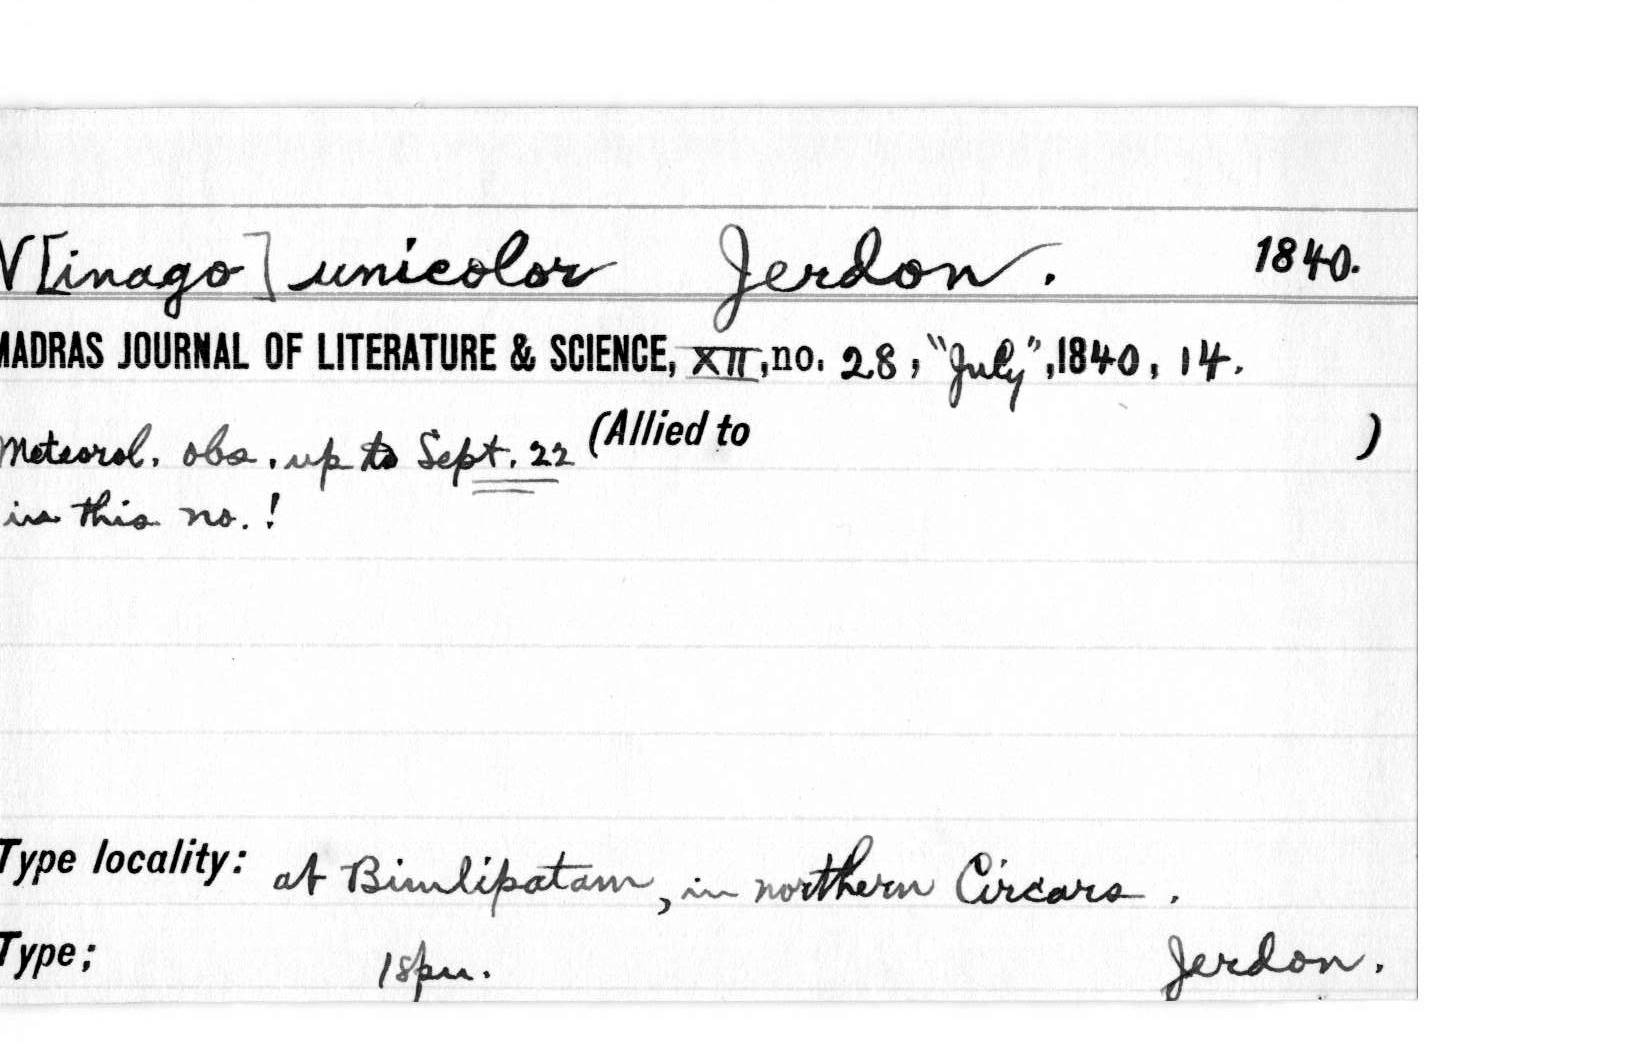 V[inago] unicolor Jerdon. 1840.
MADRAS JOURNAL OF LITERATURE & SCIENCE, XII, no. 28, "July", 1840, 14.
Meteorol. obs. up to Sept. 22 (Allied to )
in this no.!
Type locality: at Bimlipatam, in northern Circars.
Type; 1 spm. Jerdon.